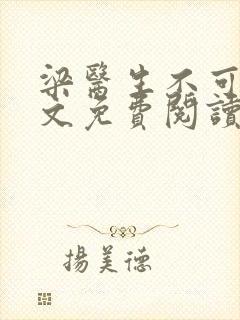 梁醫生不可
文免費閱讀
揚美德